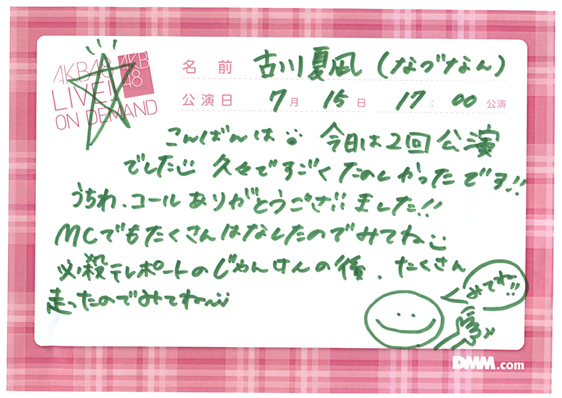 AKB48
LIVE!!
ON DEMAND
AKB
48
名前 古川夏凪 (なづなん)
公演日 7月 15日 17:00 公演
こんばんは 今日は2回公演
でした 久々ですごくたのしかったです!!
うちわ、コールありがとうございました!!
MCでもたくさんはなしたのでみてね
必殺テレポートのじゃんけんの後、たくさん
走ったのでみてねー
みてね!!
DMM.com